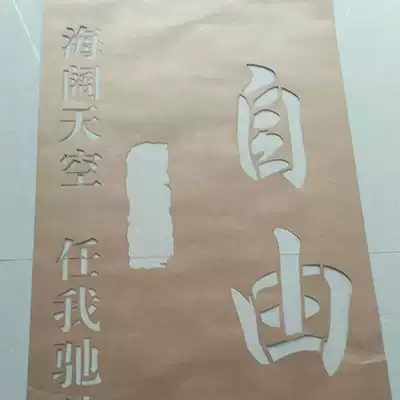 自由
海阔天空 任我驰